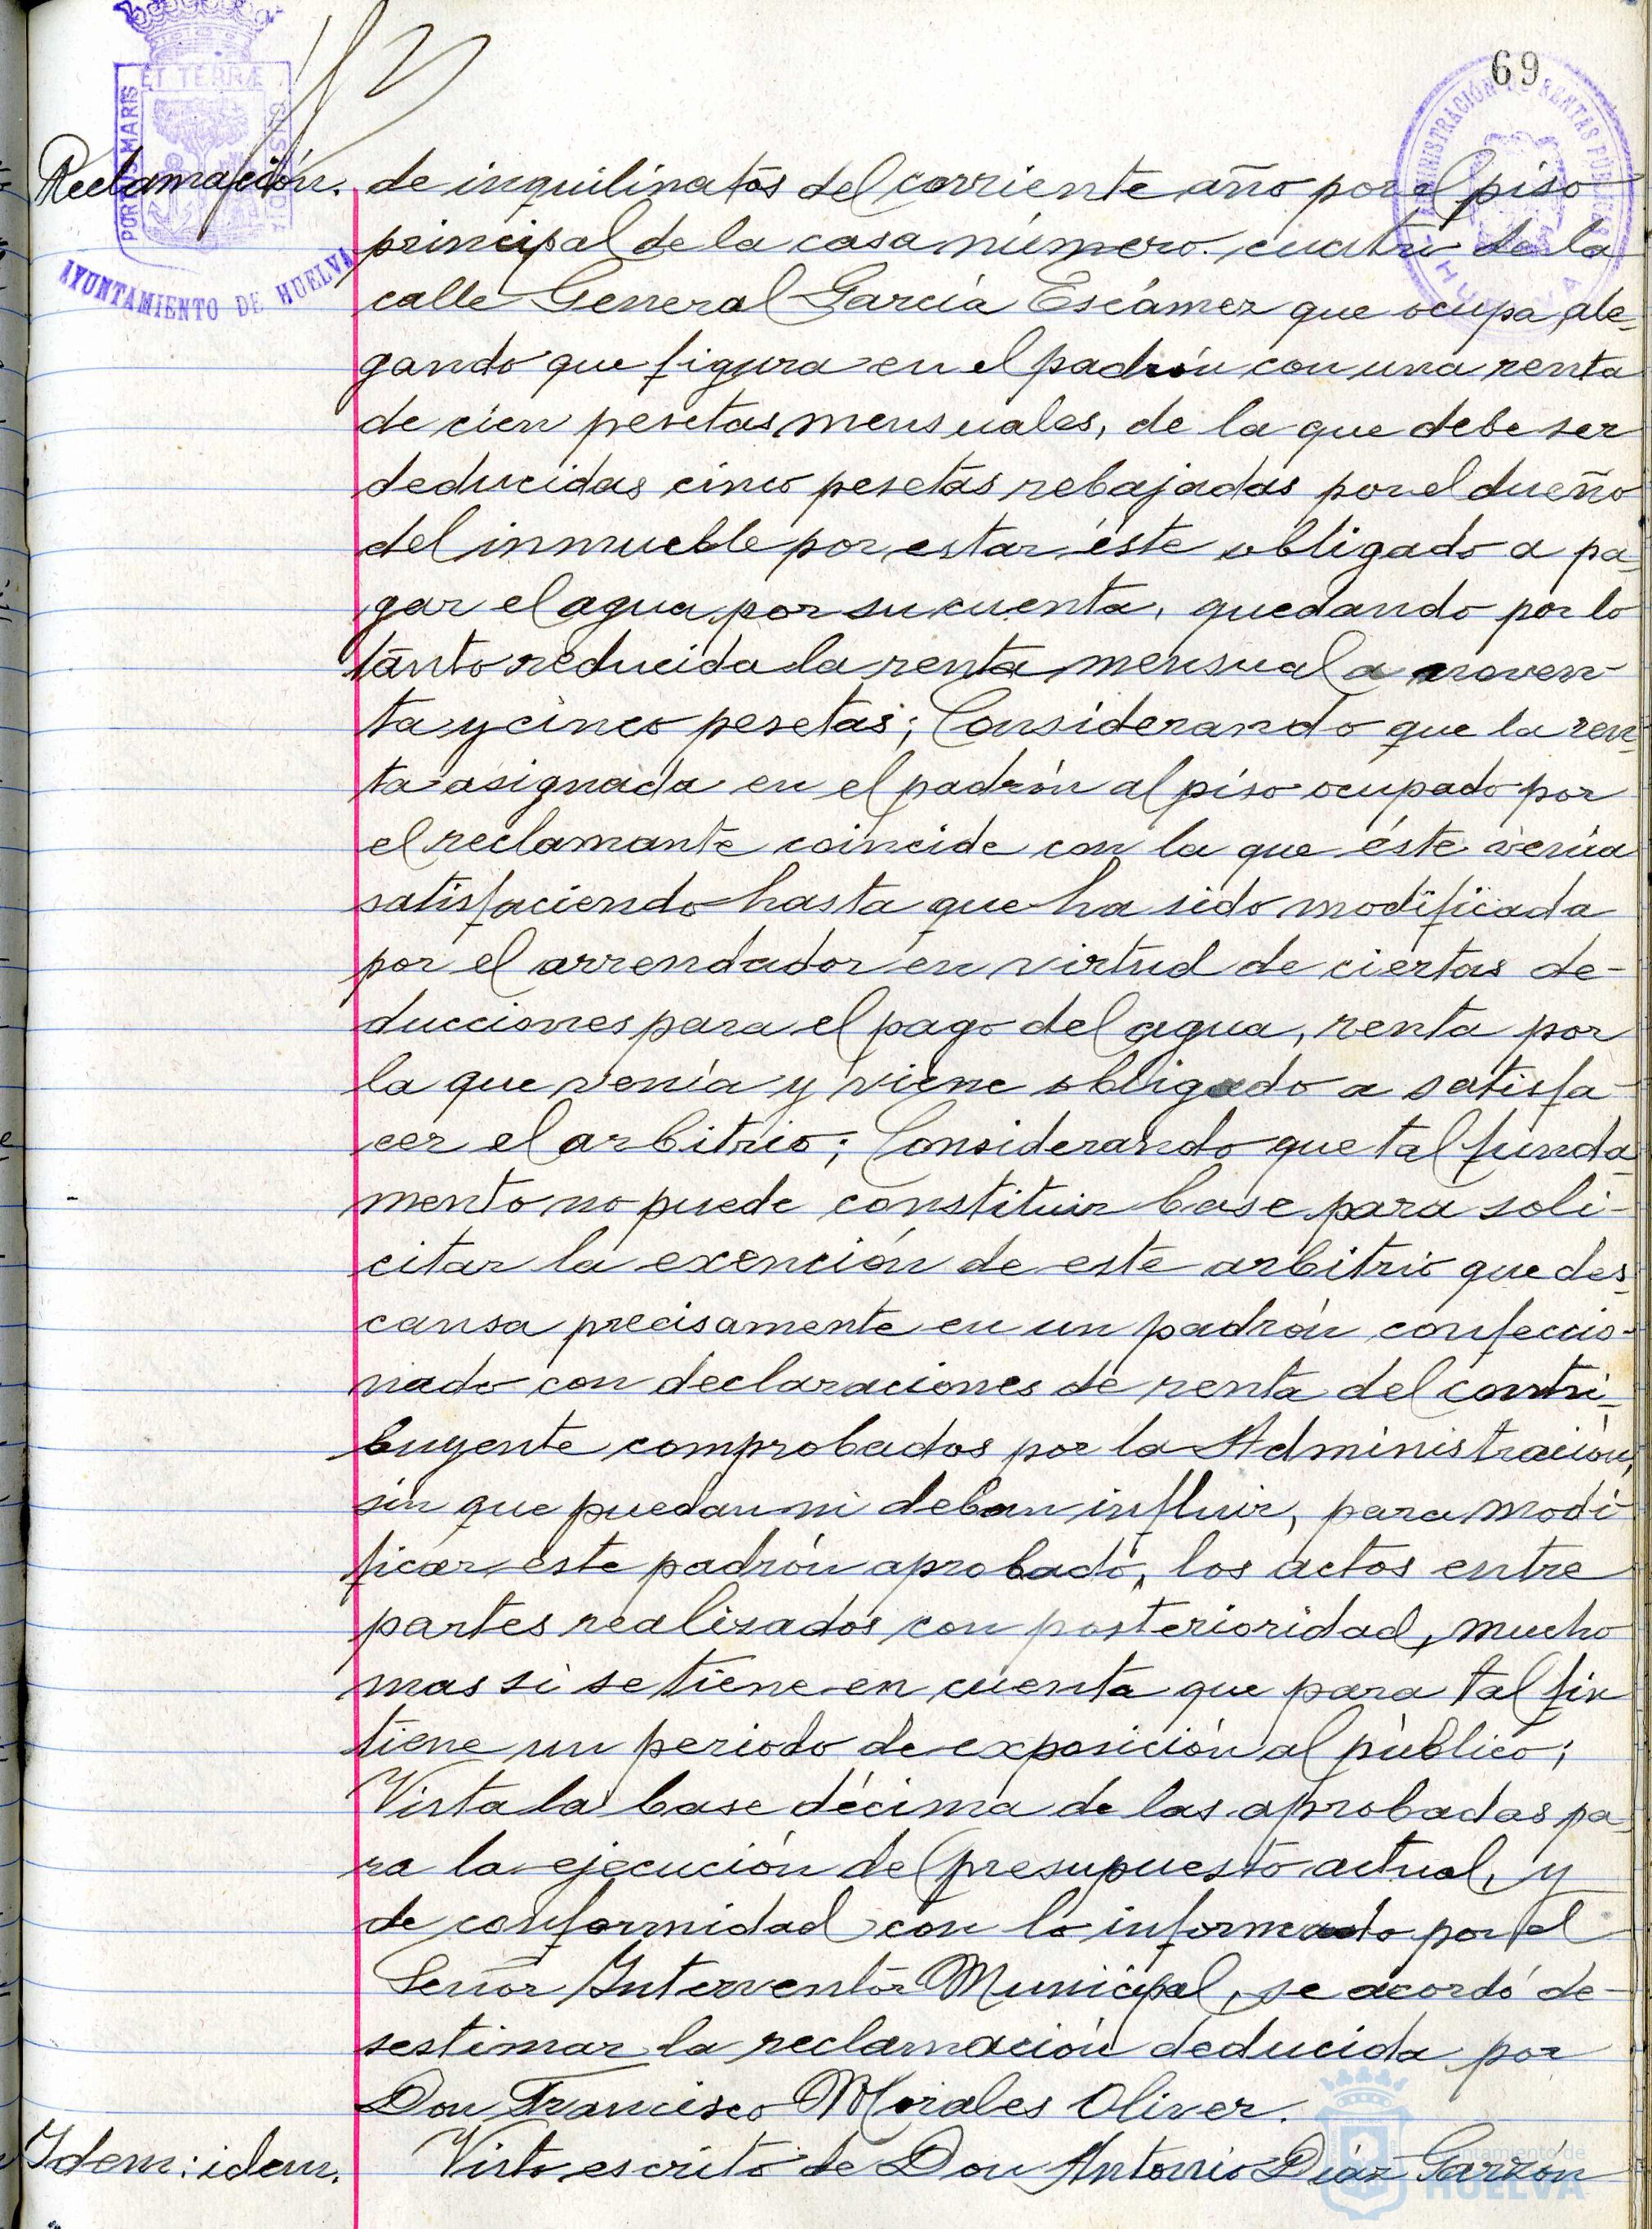 69
PORTUS MARIS
ET TERRÆ
CUSTODIA
AYUNTAMIENTO DE HUELVA
ADMINISTRACIÓN DE RENTAS PÚBLICAS
HUELVA
Reclamación. de inquilinatos del corriente año por el piso
principal de la casa número cuatro de la
calle General García Escámez que ocupa, ale-
gando que figura en el padrón con una renta
de cien pesetas mensuales, de la que debe ser
deducidas cinco pesetas rebajadas por el dueño
del inmueble por estar éste obligado a pa-
gar el agua por su cuenta, quedando por lo
tanto reducida la renta mensual a noven-
ta y cinco pesetas; Considerando que la ren-
ta asignada en el padrón al piso ocupado por
el reclamante coincide con la que éste venía
satisfaciendo hasta que ha sido modificada
por el arrendador en virtud de ciertas de-
ducciones para el pago del agua, renta por
la que venía y viene obligado a satisfa-
cer el arbitrio; Considerando que tal funda-
mento no puede constituir base para soli-
citar la exención de este arbitrio que des-
cansa precisamente en un padrón confeccio-
nado con declaraciones de renta del contri-
buyente comprobados por la Administración,
sin que puedan ni deban influir, para modi-
ficar este padrón aprobado, los actos entre
partes realizados con posterioridad, mucho
mas si se tiene en cuenta que para tal fin
tiene un periodo de exposición al público;
Vista la base décima de las aprobadas pa-
ra la ejecución del presupuesto actual, y
de conformidad con lo informado por el
Señor Interventor Municipal, se acordó de-
sestimar la reclamación deducida por
Don Francisco Morales Oliver.
Idem: idem. Visto escrito de Don Antonio Díaz Garzón
Ayuntamiento de
HUELVA